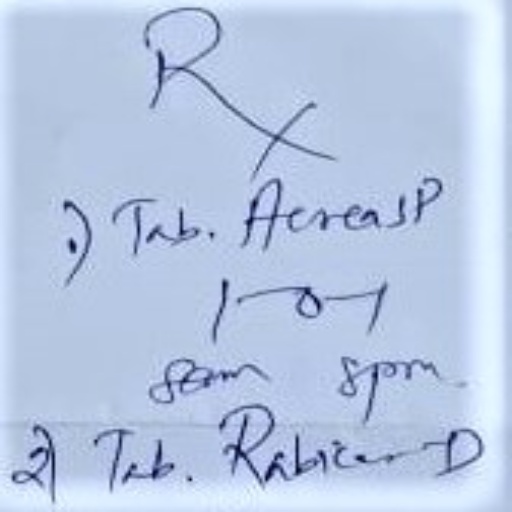 Rx
1) Tab. Acreas P
1-0-1
8am 8pm
2) Tab. Rabicer-D